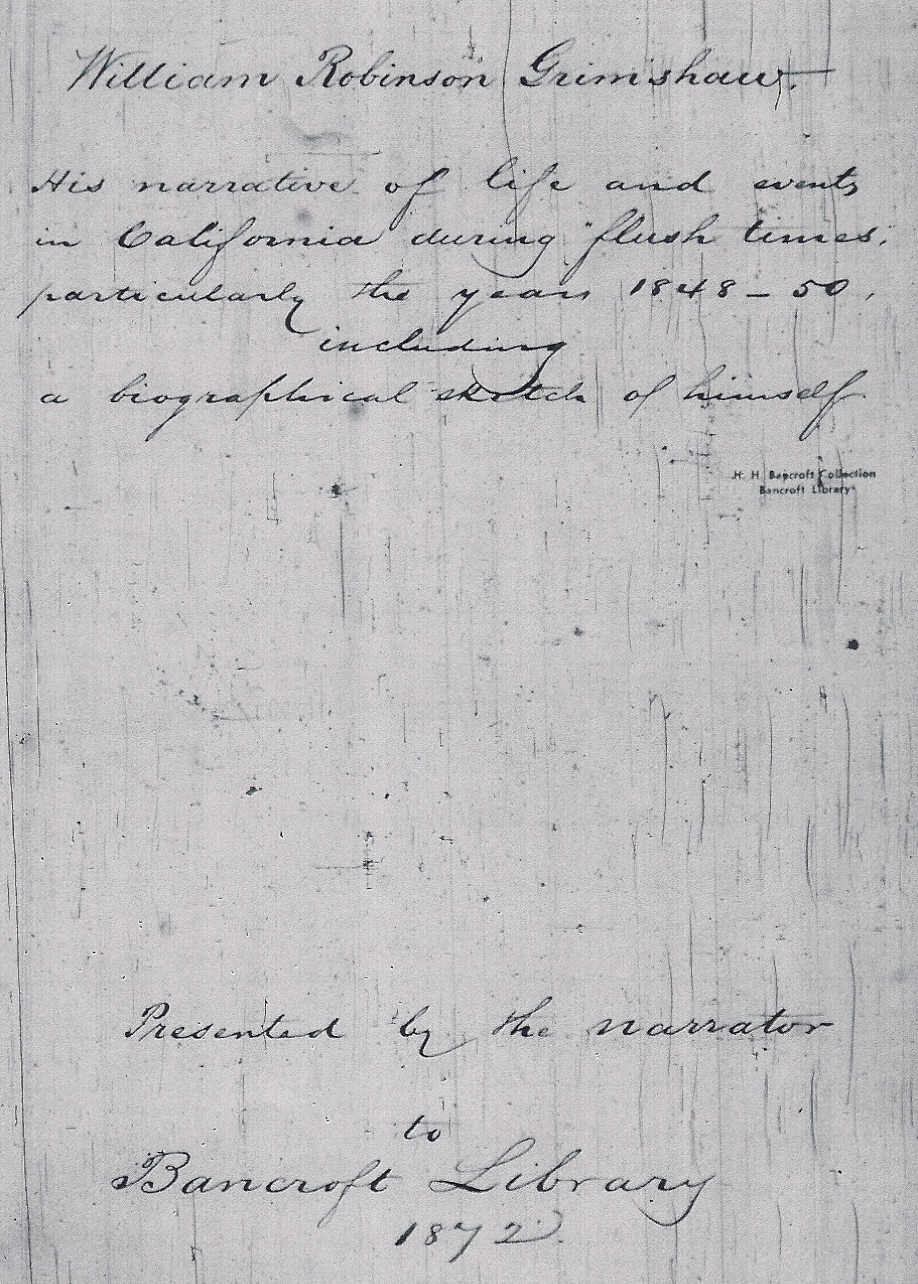 William Robinson Grimshaw.
His narrative of life and events
in California during "flush times,
particularly the years 1848 - 50,
including
a biographical sketch of himself
H. H. Bancroft Collection
Bancroft Library
Presented by the narrator
to
Bancroft Library
1872.